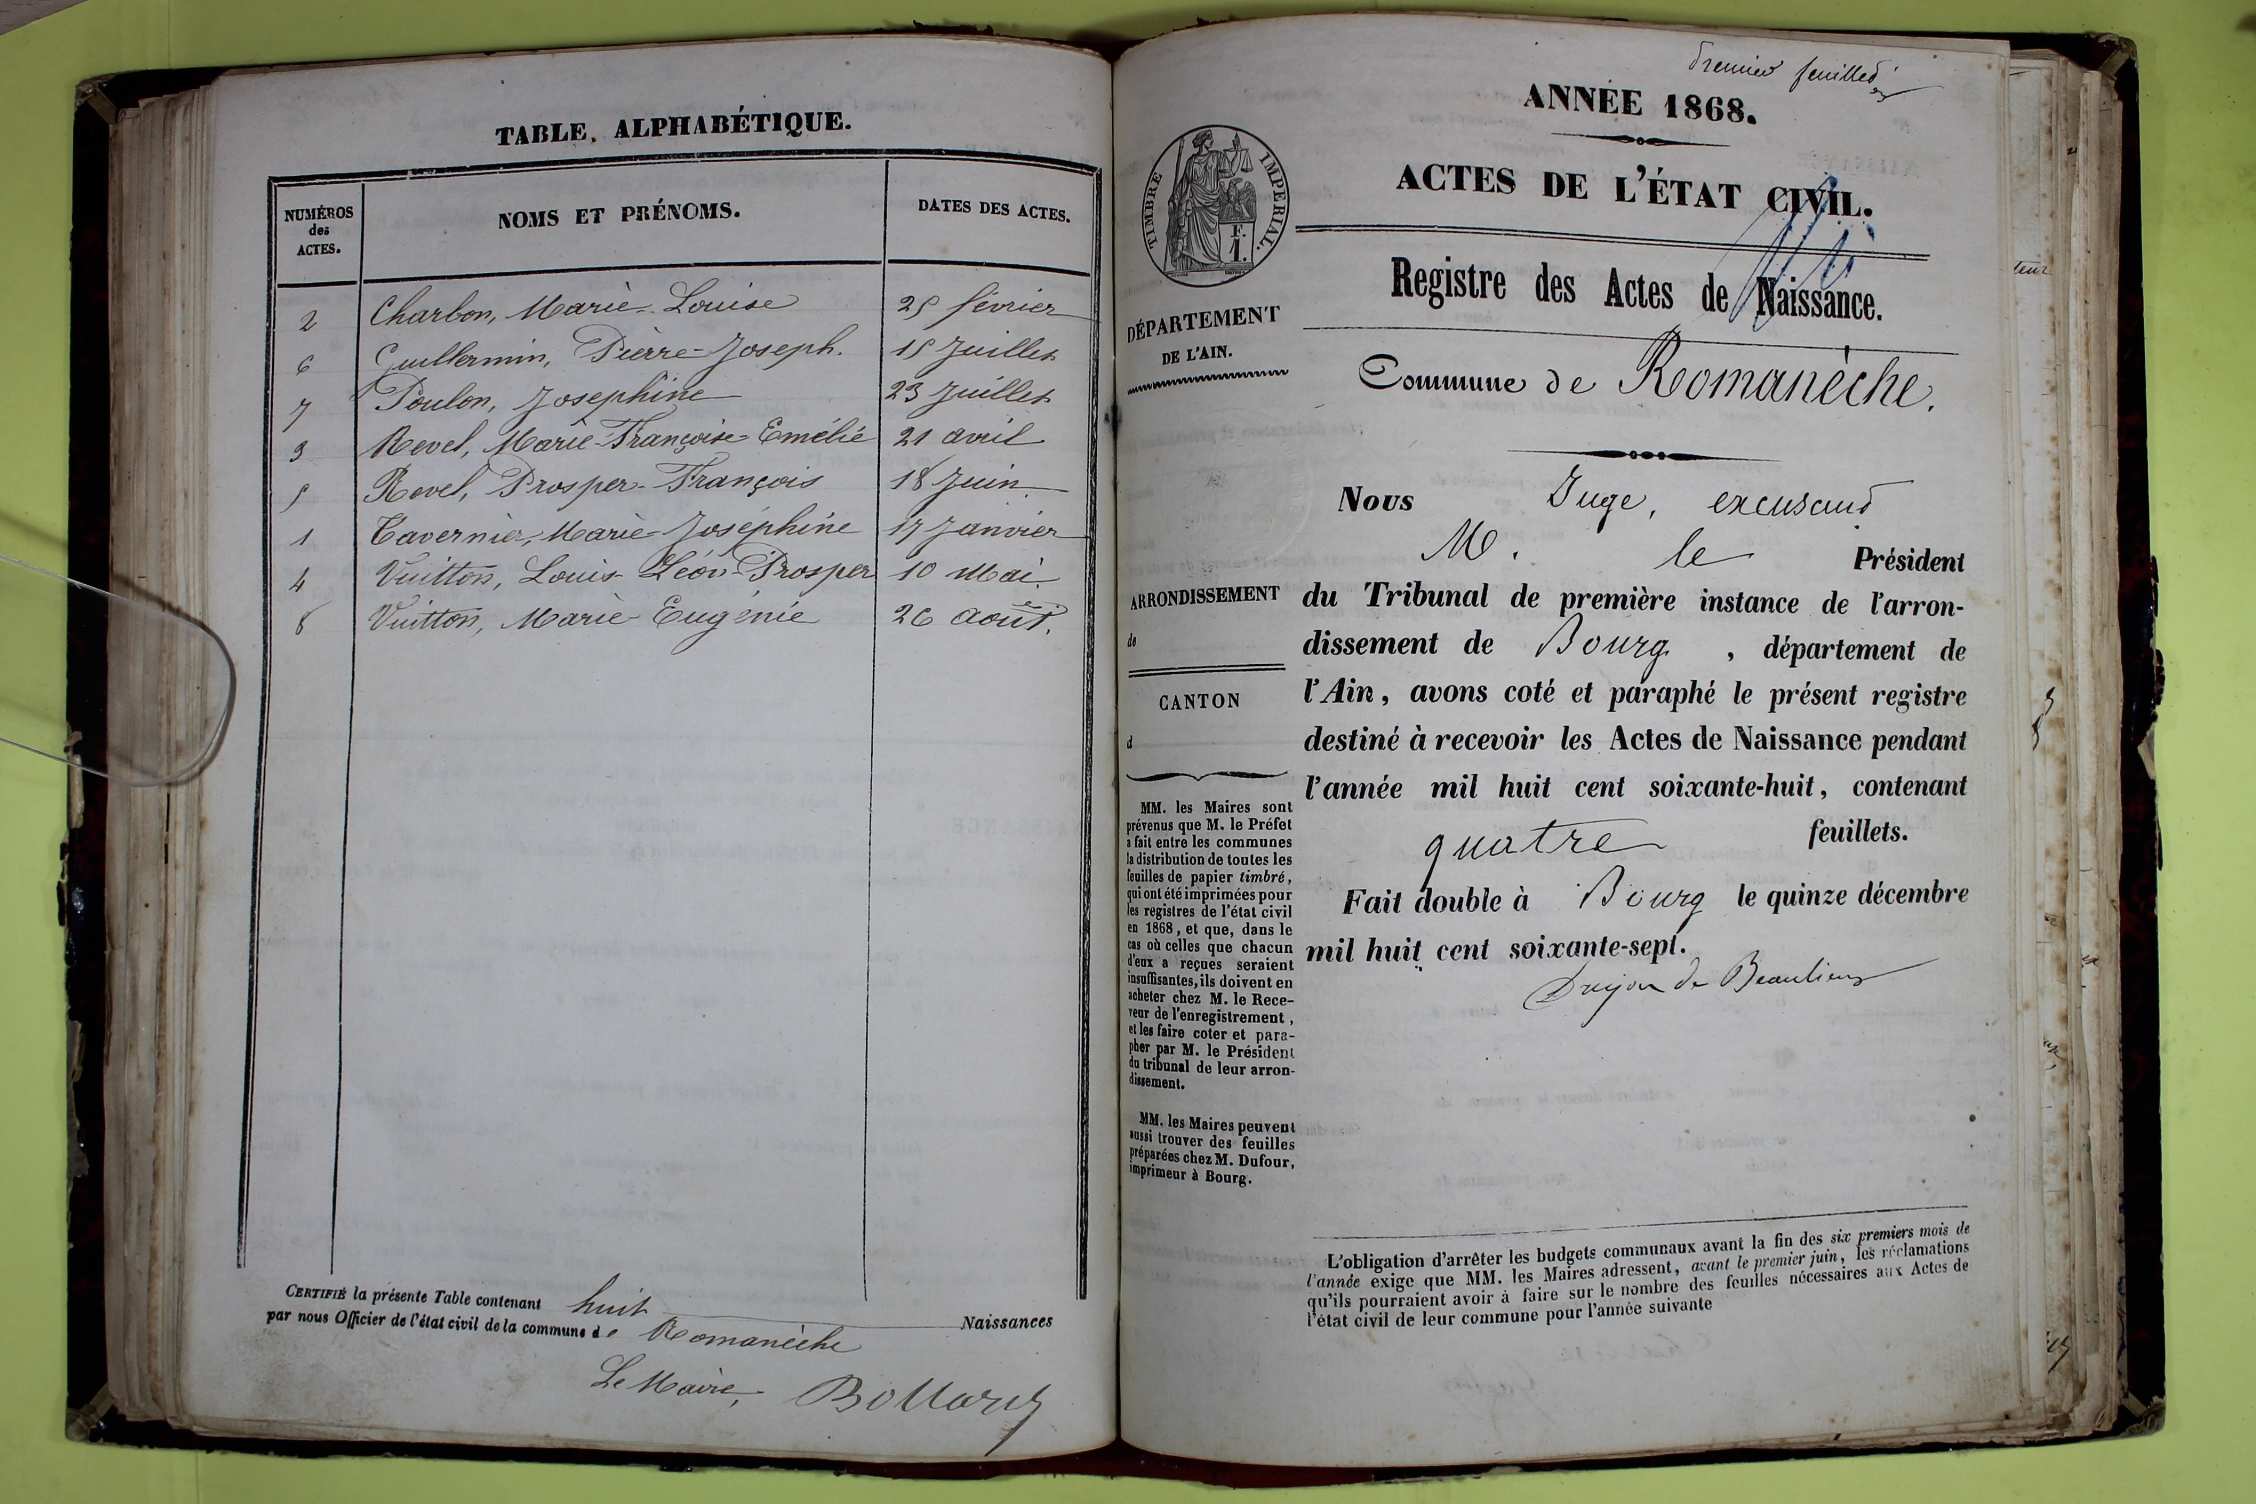 TABLE ALPHABÉTIQUE.
NUMÉROS des ACTES.
NOMS ET PRÉNOMS.
DATES DES ACTES.
2 Charbon, Marie-Louise 25 février
6 Guillermin, Pierre-Joseph. 15 Juillet
7 Poulon, Joséphine 23 Juillet
3 Revel, Marie-Françoise-Emélie 21 avril
5 Revel, Prosper-François 18 Juin
1 Tavernier, Marie-Joséphine 17 Janvier
4 Vuitton, Louis-Léon-Prosper 10 Mai
8 Vuitton, Marie-Eugénie 26 août.
CERTIFIÉ la présente Table contenant huit Naissances
par nous Officier de l'état civil de la commune de Romanèche
Le Maire,
premier feuillet
ANNÉE 1868.
ACTES DE L'ÉTAT CIVIL.
TIMBRE IMPERIAL.
F.
1.
Registre des Actes de Naissance.
DÉPARTEMENT
DE L'AIN.
Commune de Romanèche.
Nous Juge, excusant
M. le Président
du Tribunal de première instance de l'arron-
dissement de Bourg, département de
l'Ain, avons coté et paraphé le présent registre
destiné à recevoir les Actes de Naissance pendant
l'année mil huit cent soixante-huit, contenant
quatre feuillets.
Fait double à Bourg le quinze décembre
mil huit cent soixante-sept.
de Beaulieu
ARRONDISSEMENT
de
CANTON
d
MM. les Maires sont
prévenus que M. le Préfet
a fait entre les communes
la distribution de toutes les
feuilles de papier timbré,
qui ont été imprimées pour
les registres de l'état civil
en 1868, et que, dans le
cas où celles que chacun
d'eux a reçues seraient
insuffisantes, ils doivent en
acheter chez M. le Rece-
veur de l'enregistrement,
et les faire coter et para-
pher par M. le Président
du tribunal de leur arron-
dissement.
MM. les Maires peuvent
aussi trouver des feuilles
préparées chez M. Dufour,
imprimeur à Bourg.
L'obligation d'arrêter les budgets communaux avant la fin des six premiers mois de
l'année exige que MM. les Maires adressent, avant le premier juin, les réclamations
qu'ils pourraient avoir à faire sur le nombre des feuilles nécessaires aux Actes de
l'état civil de leur commune pour l'année suivante